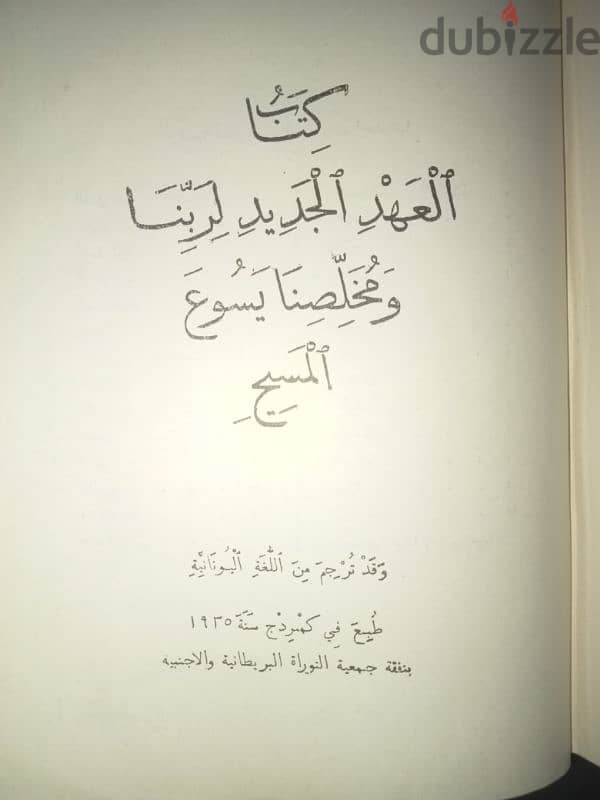 dubizzle
كِتَابُ
ٱلْعَهْدِ ٱلْجَدِيدِ لِرَبِّنَا
وَمُخَلِّصِنَا يَسُوعَ
ٱلْمَسِيحِ
وَقَدْ تُرْجِمَ مِنَ ٱللُّغَةِ ٱلْيُونَانِيَّةِ
طُبِعَ فِي كَمْبِرِدْج سَنَةَ ١٩٣٥
بنفقة جمعية التوراة البريطانية والاجنبيه